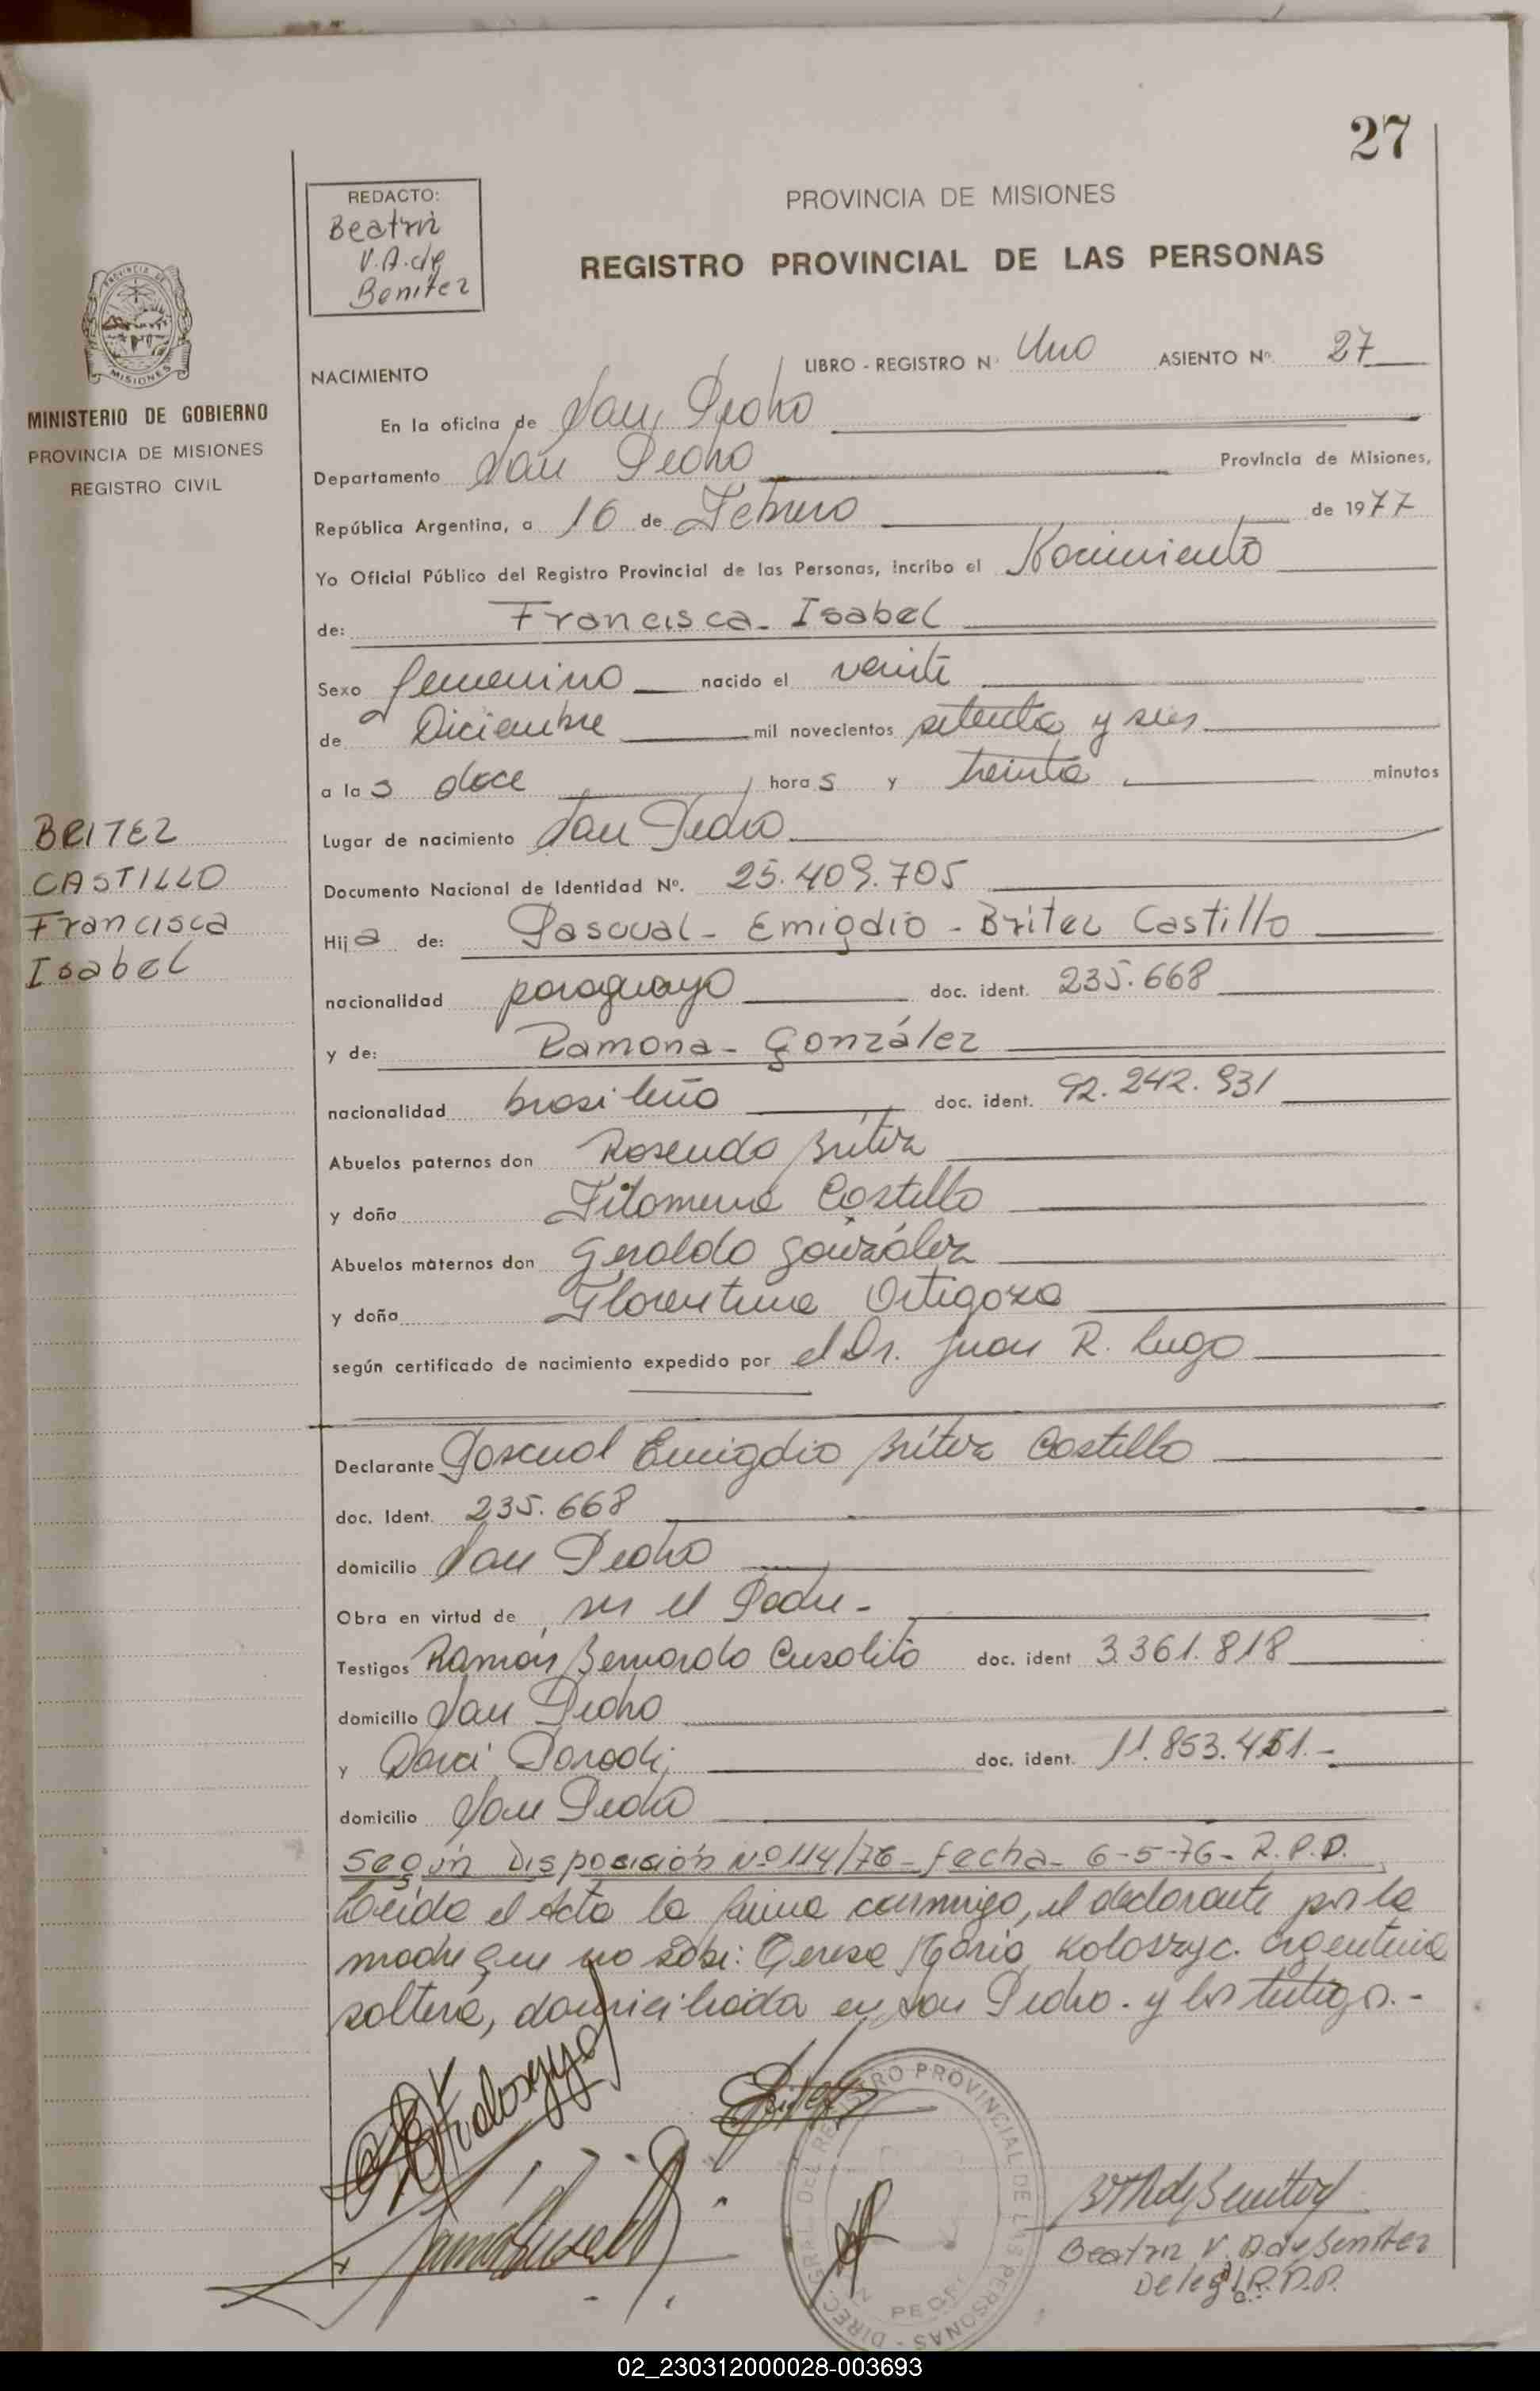 27
REDACTO:
Beatriz
V.A. de
Benitez
PROVINCIA DE MISIONES
REGISTRO PROVINCIAL DE LAS PERSONAS
MISIONES
MINISTERIO DE GOBIERNO
PROVINCIA DE MISIONES
REGISTRO CIVIL
NACIMIENTO
LIBRO - REGISTRO Nº Uno ASIENTO Nº 27
En la oficina de San Pedro
Departamento San Pedro Provincia de Misiones,
República Argentina, a 16 de Febrero de 1977
Yo Oficial Público del Registro Provincial de las Personas, incribo el Nacimiento
de: Francisca - Isabel
Sexo femenino nacido el veinte
de Diciembre mil novecientos setenta y seis
a las doce horas y treinta minutos
Lugar de nacimiento San Pedro
BRITEZ
CASTILLO
Francisca
Isabel
Documento Nacional de Identidad Nº. 25.409.705
Hija de: Pascual - Emigdio - Britez Castillo
nacionalidad paraguayo doc. ident. 235.668
y de: Ramona - González
nacionalidad brasileña doc. ident. 92.242.931
Abuelos paternos don Rosendo Brítez
y doña Filomena Castillo
Abuelos maternos don Geraldo González
y doña Florentina Ortigoza
según certificado de nacimiento expedido por el Dr. Juan R. Lugo
Declarante Pascual Emigdio Brítez Castillo
doc. Ident. 235.668
domicilio San Pedro
Obra en virtud de ser el Padre -
Testigos Ramón Bernardo Cusolito doc. ident 3.361.818
domicilio San Pedro
y Darci Parodi doc. ident. 11.853.451.-
domicilio San Pedro
Según Disposición Nº 114/76 - fecha - 6-5-76 - R.P.P.
Leída el Acta la firma conmigo, el declarante por la
madre que no sabe: Teresa María Koloszyc. argentina
soltera, domiciliada en San Pedro. y los testigos.-
DIREC. GRAL. DEL REGISTRO PROVINCIAL DE LAS PERSONAS
Beatriz V. A de Benitez
Deleg. R.P.P.
02_230312000028-003693